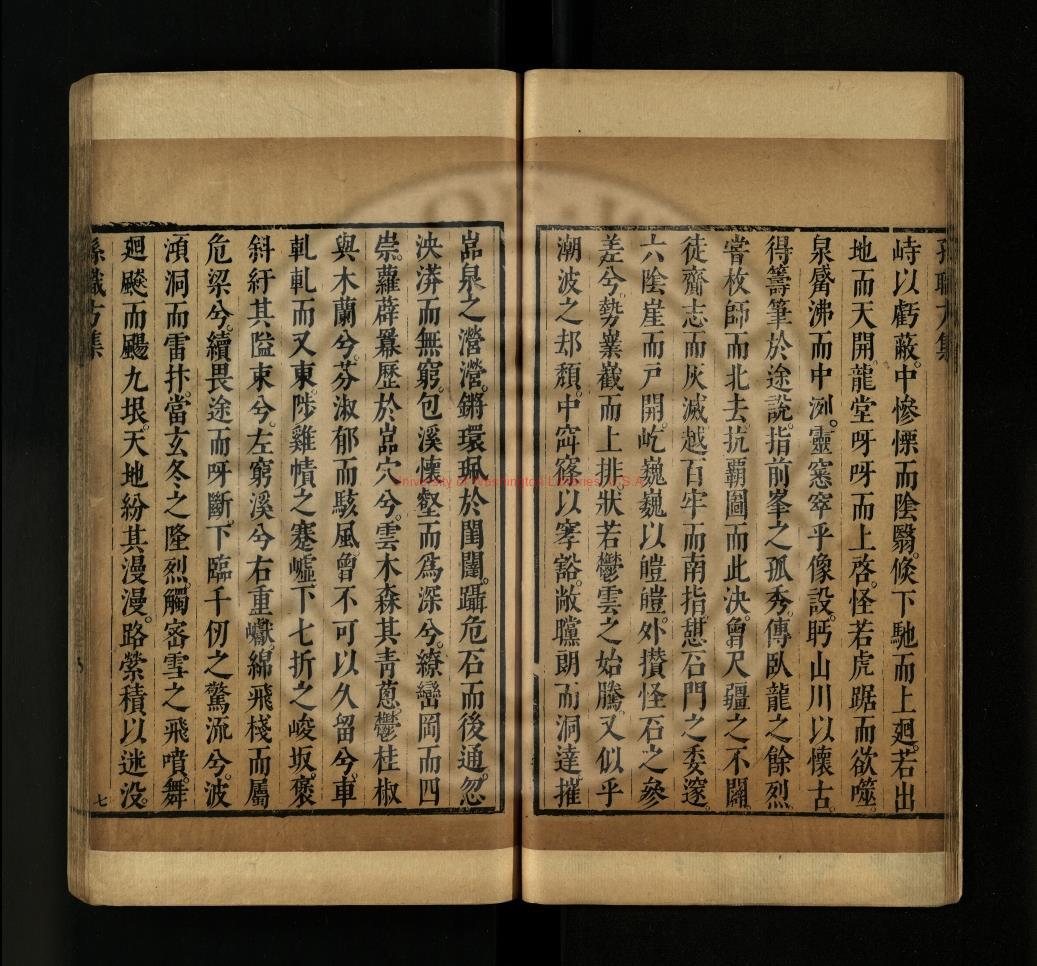 孫職方集
峙以虧蔽。中慘慄而陰翳。倏下馳而上廻。若出
地而天開。龍堂呀呀而上啓。怪若虎踞而欲噬。
泉觱沸而中冽。靈窓窣乎像設。眄山川以懷古。
得籌筆於途說。指前峯之孤秀。傳臥龍之餘烈。
嘗枚師而北去。抗覇圖而此決。曾尺疆之不闢。
徒齎志而灰滅。越百牢而南指。憇石門之委邃。
六陰崖而戸開。屹巍巍以皚皚。外攅怪石之參
差兮。勢嶪嶻而上排。狀若鬱雲之始騰。又似乎
潮波之却頹。中窅窱以𡩋豁。敞矘朗而洞達。摧
嵓泉之灐灐。鏘環珮於閨闥。躡危石而後通。忽
泱漭而無窮。包溪懷壑而爲深兮。繚巒岡而四
崇。蘿薜羃歷於嵓穴兮。雲木森其靑蔥。鬱桂椒
與木蘭兮。芬淑郁而駭風。曾不可以久留兮。車
軋軋而又東。陟雞幘之蹇嵼。下七折之峻坂。褒
斜紆其隘束兮。左窮溪兮右重巘。綿飛棧而屬
危梁兮。續畏途而呀斷。下臨千仞之驚流兮。波
澒洞而雷抃。當玄冬之隆烈。觸密雪之飛噴。舞
廻飈而飀九垠。天地紛其漫漫。路縈積以迷没。
孫職方集
七
University of Washington Libraries, U.S.A